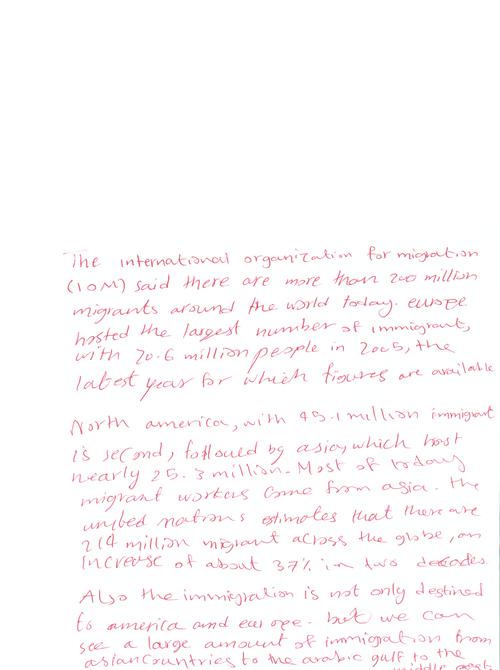 The international organization for migration
(IOM) said there are more than 200 million
migrants around the world today. europe
hosted the largest number of immigrant,
with 70.6 million people in 2005, the
latest year for which figures are available
North america, with 45.1 million immigrant
is second, followed by asia, which host
nearly 25.3 million. Most of today
migrant workers come from asia. the
united nations estimates that there are
214 million migrant across the globe, an
Increase of about 37% in two decades.
Also the immigration is not only destined
to america and europe. but we can
see a large amount of immigration from
asian countries to the arabic gulf to the
middle east